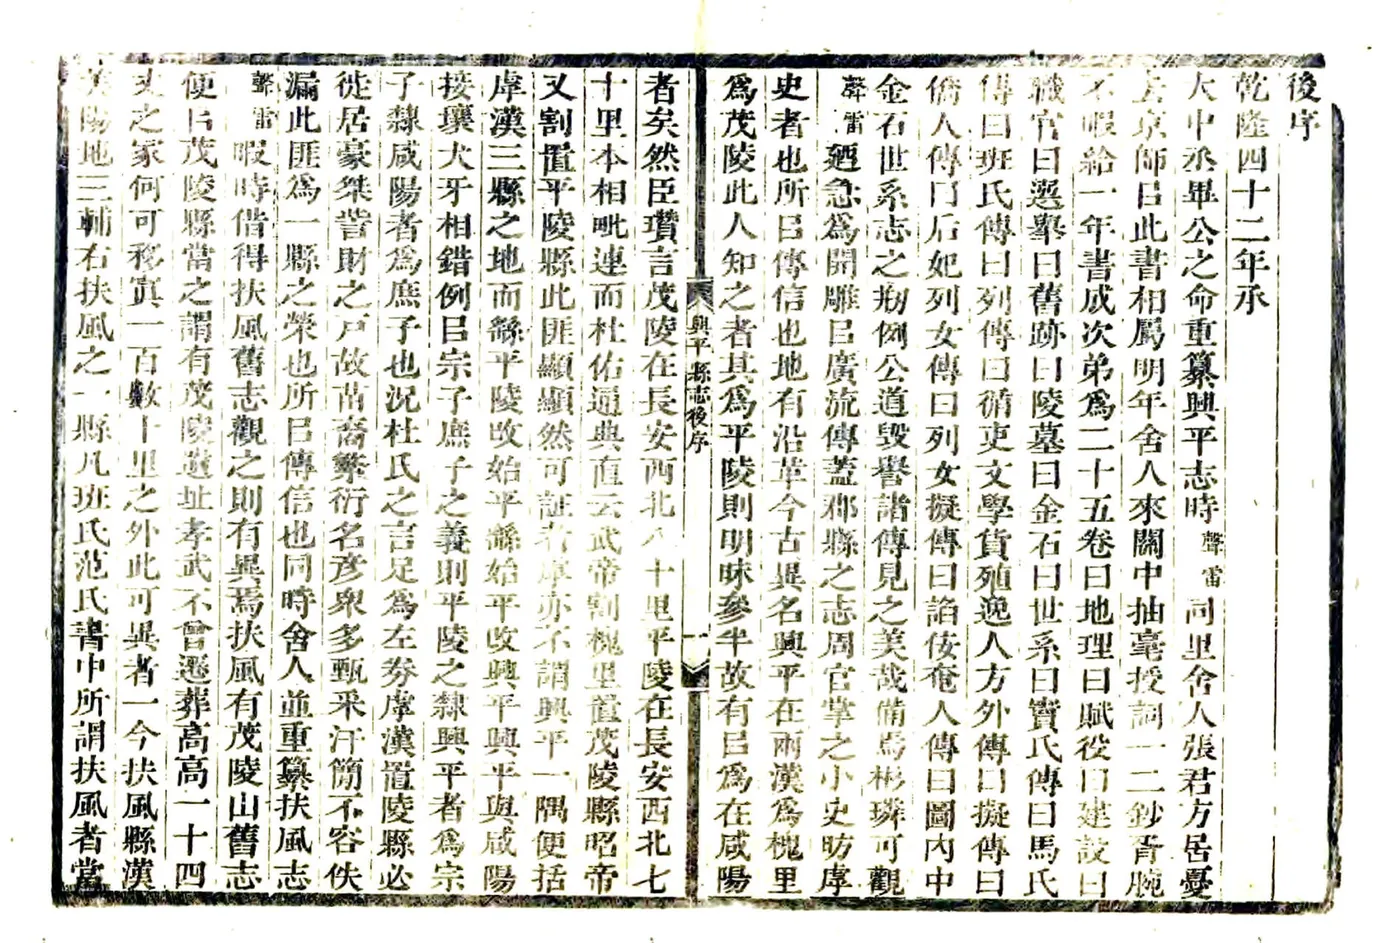 後序
乾隆四十二年承
大中丞畢公之命重纂興平志時聲雷同里舍人張君方居憂
上京師㠯此書相屬明年舍人來關中抽毫授詞一二鈔胥腕
不暇給一年書成次弟爲二十五卷曰地理曰賦役曰建設曰
職官曰選舉曰舊跡曰陵墓曰金石曰世系曰竇氏傳曰馬氏
傳曰班氏傳曰列傳曰循吏文學貨殖逸人方外傳曰擬傳曰
僑人傳曰后妃列女傳曰列女擬傳曰諂佞奄人傳曰圖內中
金石世系志之剏例公道毁譽諸傳見之美哉備焉彬璘可觀
聲雷廼急爲開雕㠯廣流傳蓋郡縣之志周官掌之小史昉虖
史者也所㠯傳信也地有沿革今古異名興平在兩漢爲槐里
爲茂陵此人知之者其爲平陵則明昧參半故有㠯爲在咸陽
興平縣志後序
一
者矣然臣瓚言茂陵在長安西北八十里平陵在長安西北七
十里本相毗連而杜佑通典直云武帝割槐里置茂陵縣昭帝
又割置平陵縣此匪顯顯然可証者虖亦不謂興平一隅便括
虖漢三縣之地而繇平陵改始平繇始平改興平興平與咸陽
接壤犬牙相錯例㠯宗子庶子之義則平陵之隸興平者爲宗
子隸咸陽者爲庶子也況杜氏之言足爲左券虖漢置陵縣必
徙居豪桀訾財之戶故苗裔繁衍名彦衆多甄釆汗簡不容佚
漏此匪爲一縣之榮也所㠯傳信也同時舍人並重纂扶風志
聲雷暇時借得扶風舊志觀之則有異焉扶風有茂陵山舊志
便㠯茂陵縣當之謂有茂陵遺址孝武不曾遷葬高高一十四
丈之冢何可移寘一百數十里之外此可異者一今扶風縣漢
美陽地三輔右扶風之一縣凡班氏范氏書中所謂扶風者當